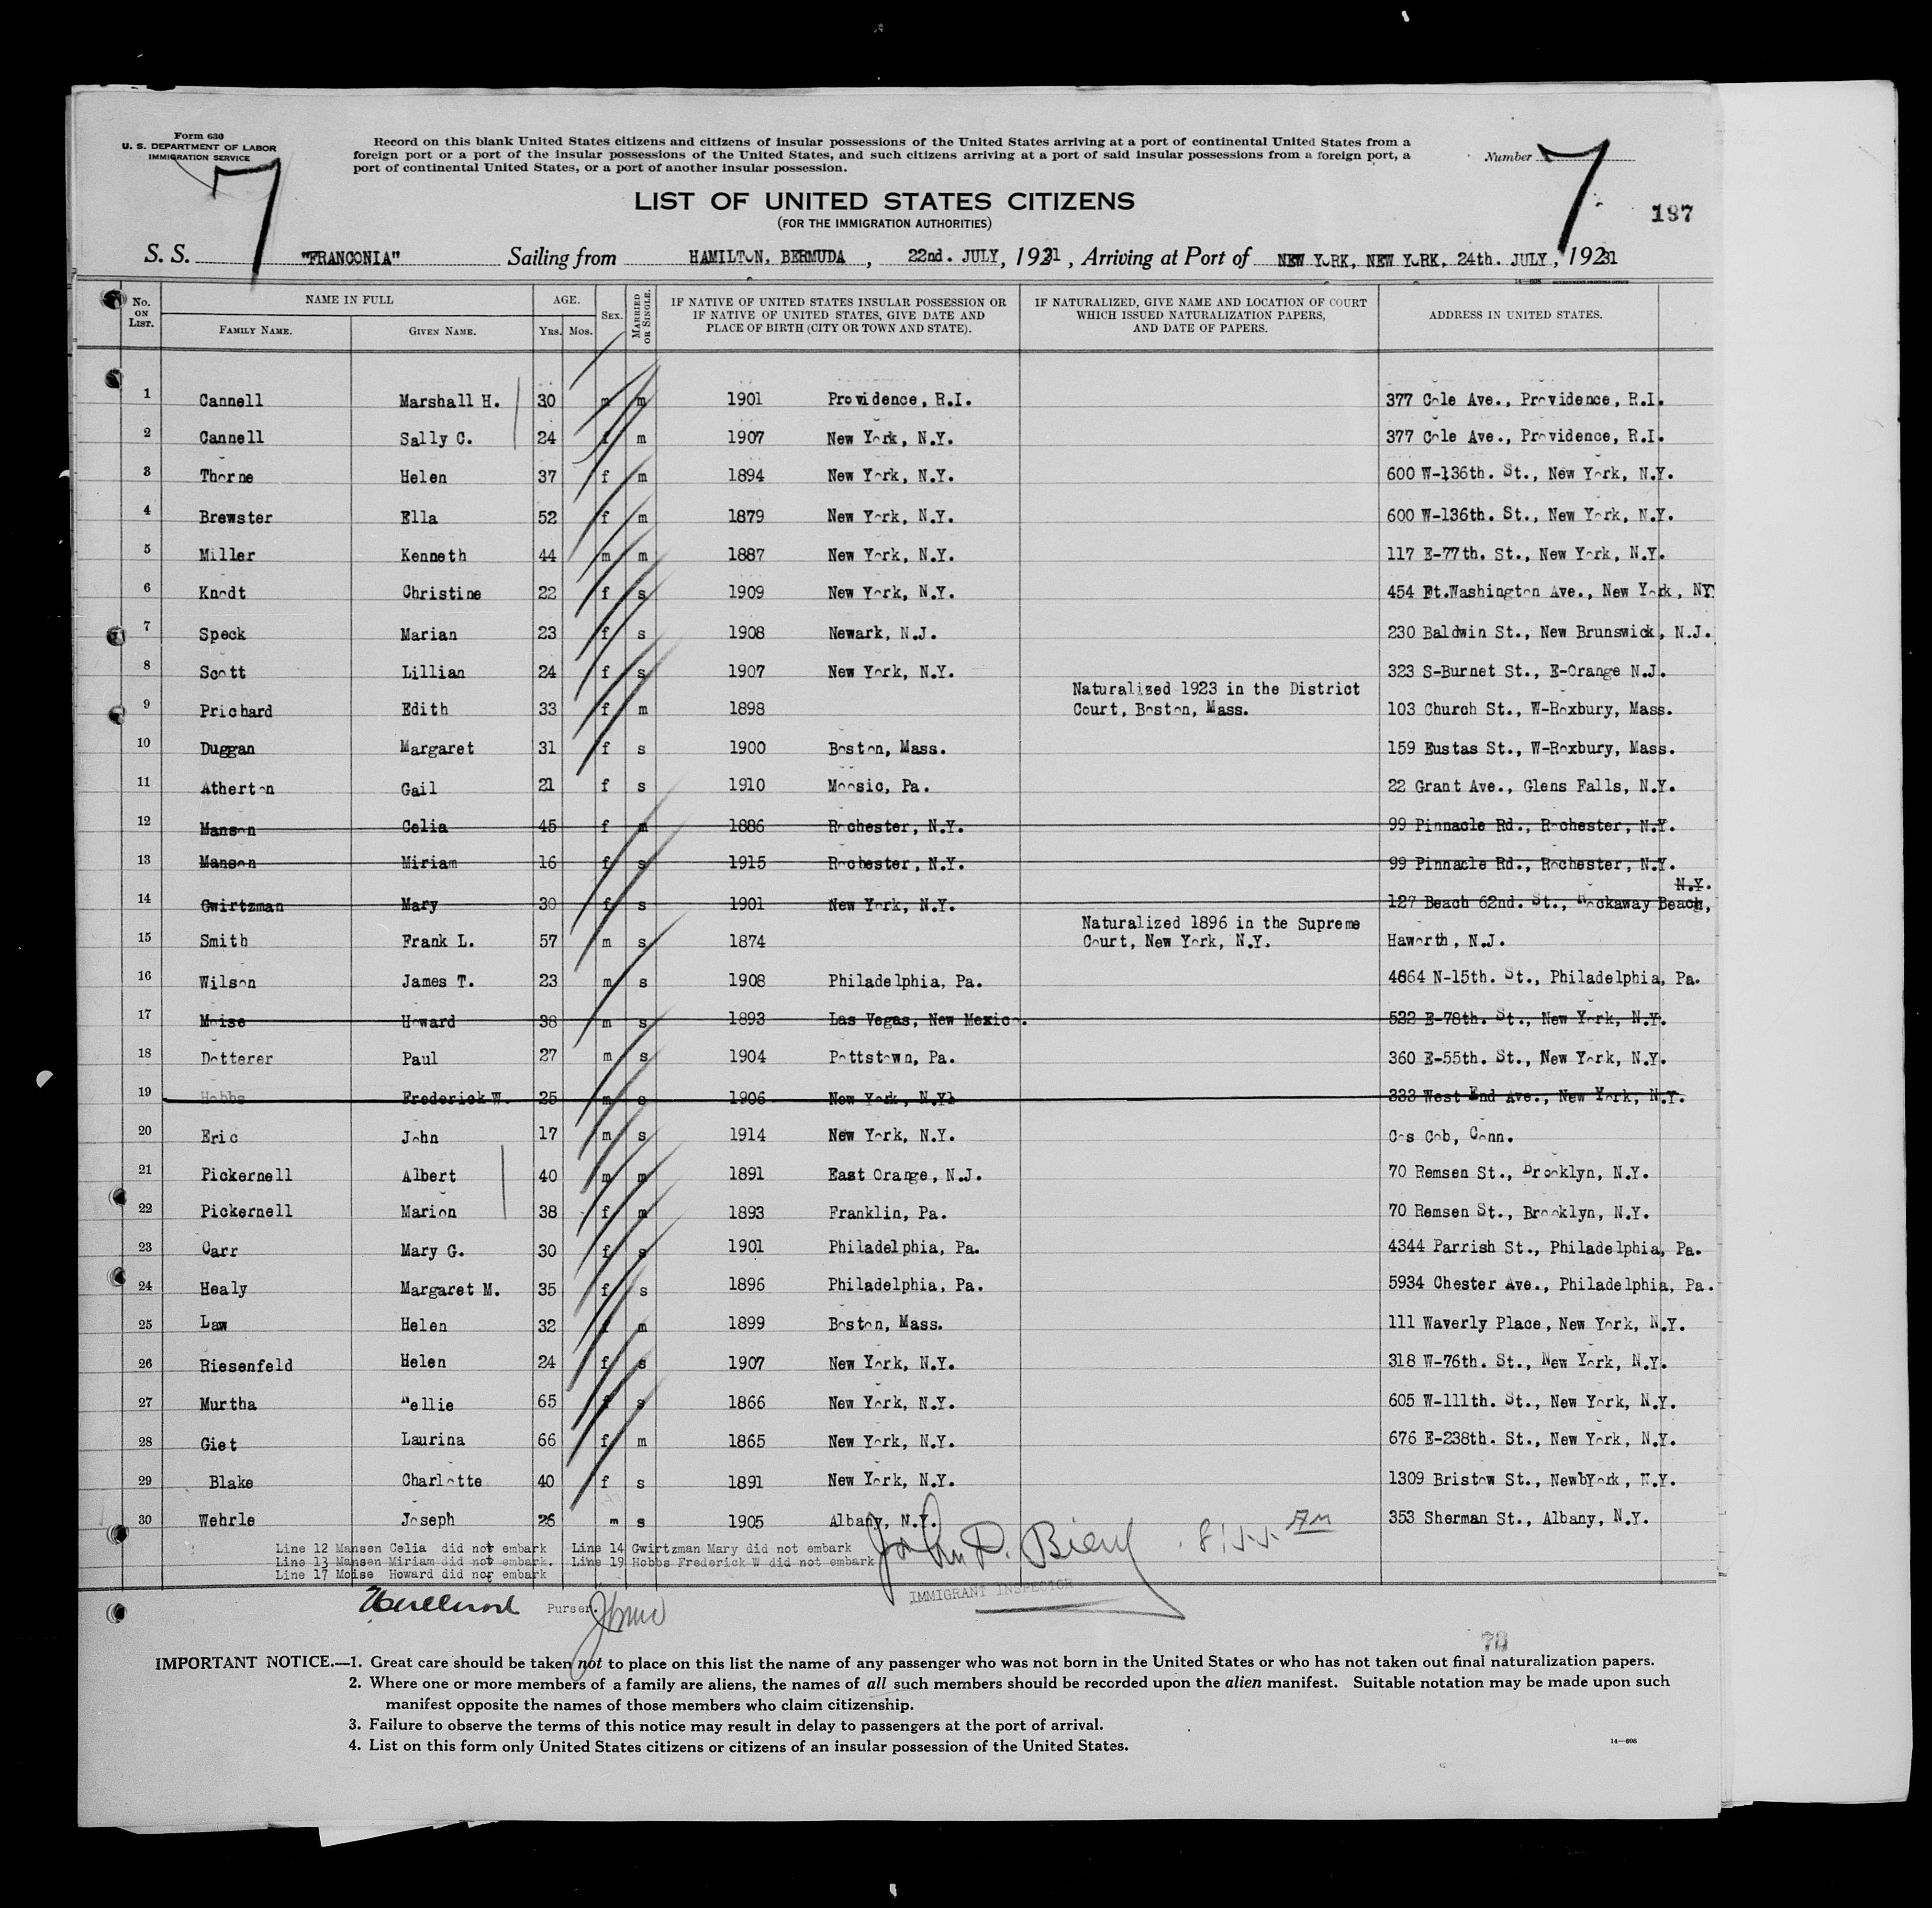 Form 630
U. S. DEPARTMENT OF LABOR
IMMIGRATION SERVICE
7
Record on this blank United States citizens and citizens of insular possessions of the United States arriving at a port of continental United States from a
foreign port or a port of the insular possessions of the United States, and such citizens arriving at a port of said insular possessions from a foreign port, a
port of continental United States, or a port of another insular possession.
Number 7
187
LIST OF UNITED STATES CITIZENS
(FOR THE IMMIGRATION AUTHORITIES)
S. S. "FRANCONIA" Sailing from HAMILTON, BERMUDA, 22nd. JULY, 1931, Arriving at Port of NEW YORK, NEW YORK, 24th. JULY, 1931
No. ON LIST. NAME IN FULL FAMILY NAME. GIVEN NAME. AGE. YRS. MOS. SEX. MARRIED OR SINGLE. IF NATIVE OF UNITED STATES INSULAR POSSESSION OR IF NATIVE OF UNITED STATES, GIVE DATE AND PLACE OF BIRTH (CITY OR TOWN AND STATE). IF NATURALIZED, GIVE NAME AND LOCATION OF COURT WHICH ISSUED NATURALIZATION PAPERS, AND DATE OF PAPERS. ADDRESS IN UNITED STATES.
1 Cannell Marshall H. 30 m m 1901 Providence, R.I. 377 Cole Ave., Providence, R.I.
2 Cannell Sally C. 24 f m 1907 New York, N.Y. 377 Cole Ave., Providence, R.I.
3 Thorne Helen 37 f m 1894 New York, N.Y. 600 W-136th. St., New York, N.Y.
4 Brewster Ella 52 f m 1879 New York, N.Y. 600 W-136th. St., New York, N.Y.
5 Miller Kenneth 44 m m 1887 New York, N.Y. 117 E-77th. St., New York, N.Y.
6 Knodt Christine 22 f s 1909 New York, N.Y. 454 Ft.Washington Ave., New York, NY
7 Speck Marian 23 f s 1908 Newark, N.J. 230 Baldwin St., New Brunswick, N.J.
8 Scott Lillian 24 f s 1907 New York, N.Y. 323 S-Burnet St., E-Orange N.J.
9 Prichard Edith 33 f m 1898 Naturalized 1923 in the District Court, Boston, Mass. 103 Church St., W-Roxbury, Mass.
10 Duggan Margaret 31 f s 1900 Boston, Mass. 159 Eustas St., W-Roxbury, Mass.
11 Atherton Gail 21 f s 1910 Moosic, Pa. 22 Grant Ave., Glens Falls, N.Y.
12 Manson Celia 45 f m 1886 Rochester, N.Y. 99 Pinnacle Rd., Rochester, N.Y.
13 Manson Miriam 16 f s 1915 Rochester, N.Y. 99 Pinnacle Rd., Rochester, N.Y.
14 Gwirtzman Mary 30 f s 1901 New York, N.Y. 127 Beach 62nd. St., Rockaway Beach, N.Y.
15 Smith Frank L. 57 m s 1874 Naturalized 1896 in the Supreme Court, New York, N.Y. Haworth, N.J.
16 Wilson James T. 23 m s 1908 Philadelphia, Pa. 4664 N-15th. St., Philadelphia, Pa.
17 Moise Howard 38 m s 1893 Las Vegas, New Mexico. 522 E-78th. St., New York, N.Y.
18 Dotterer Paul 27 m s 1904 Pottstown, Pa. 360 E-55th. St., New York, N.Y.
19 Hobbs Frederick W. 25 m s 1906 New York, N.Y. 333 West End Ave., New York, N.Y.
20 Eric John 17 m s 1914 New York, N.Y. Cos Cob, Conn.
21 Pickernell Albert 40 m m 1891 East Orange, N.J. 70 Remsen St., Brooklyn, N.Y.
22 Pickernell Marion 38 f m 1893 Franklin, Pa. 70 Remsen St., Brooklyn, N.Y.
23 Carr Mary G. 30 f s 1901 Philadelphia, Pa. 4344 Parrish St., Philadelphia, Pa.
24 Healy Margaret M. 35 f s 1896 Philadelphia, Pa. 5934 Chester Ave., Philadelphia, Pa.
25 Law Helen 32 f m 1899 Boston, Mass. 111 Waverly Place, New York, N.Y.
26 Riesenfeld Helen 24 f s 1907 New York, N.Y. 318 W-76th. St., New York, N.Y.
27 Murtha Nellie 65 f s 1866 New York, N.Y. 605 W-111th. St., New York, N.Y.
28 Giet Laurina 66 f m 1865 New York, N.Y. 676 E-238th. St., New York, N.Y.
29 Blake Charlotte 40 f s 1891 New York, N.Y. 1309 Bristow St., NewbYork, N.Y.
30 Wehrle Joseph 26 m s 1905 Albany, N.Y. 353 Sherman St., Albany, N.Y.
Line 12 Mansen Celia did not embark Line 14 Gwirtzman Mary did not embark
Line 13 Mansen Miriam did not embark. Line 19 Hobbs Frederick W did not embark
Line 17 Moise Howard did nor embark
John D. 8:55 AM
Purser.
IMMIGRANT INSPECTOR
IMPORTANT NOTICE.—1. Great care should be taken not to place on this list the name of any passenger who was not born in the United States or who has not taken out final naturalization papers.
2. Where one or more members of a family are aliens, the names of all such members should be recorded upon the alien manifest. Suitable notation may be made upon such
manifest opposite the names of those members who claim citizenship.
3. Failure to observe the terms of this notice may result in delay to passengers at the port of arrival.
4. List on this form only United States citizens or citizens of an insular possession of the United States.
14—606